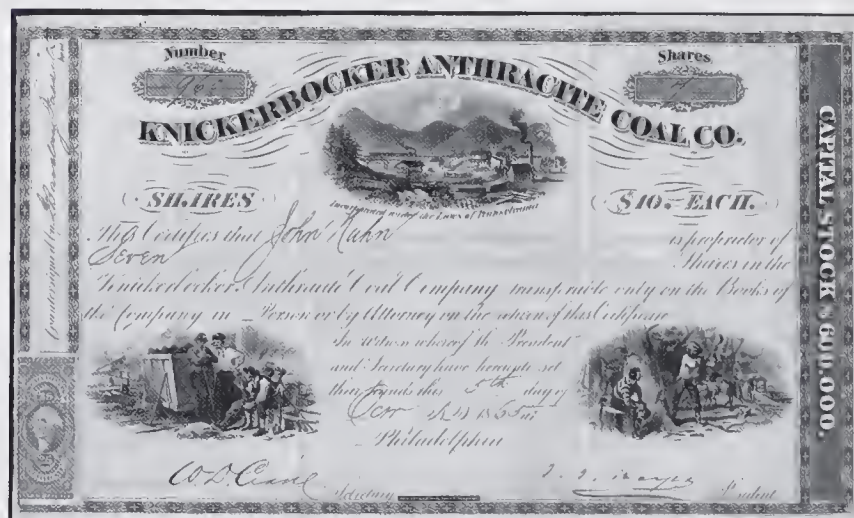 Number
Shares
KNICKERBOCKER ANTHRACITE COAL CO.
SHARES
$10. EACH.
Incorporated under the Laws of Pennsylvania
This Certifies that John is proprietor of
Seven Shares in the
Knickerbocker Anthracite Coal Company transferable only on the Books of
the Company in Person or by Attorney on the return of this Certificate
In witness whereof the President
and Secretary have hereunto set
their hands this 5th day of
Philadelphia
Secretary
President
Countersigned
CAPITAL STOCK $600,000.